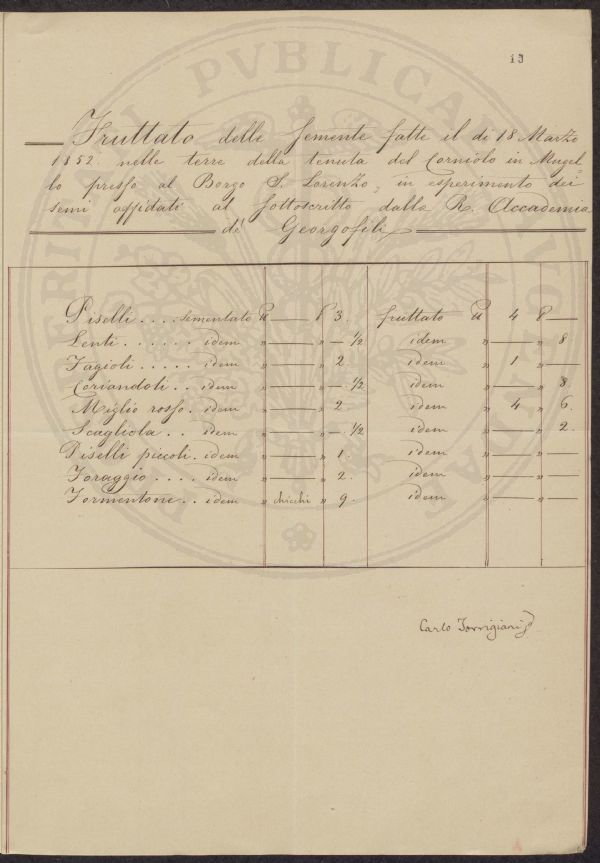 13
Fruttato delle semente fatte il di 18 Marzo
1852. nelle terre della tenuta del Corniolo in Mugel
lo presso al Borgo S. Lorenzo, in esperimento dei
semi affidati al sottoscritto dalla R. Accademia
de' Georgofili
Piselli .... sementato ℔ — P 3. fruttato ℔ 4 P —
Lenti ...... idem " — " — ½ idem " — " 8
Fagioli ..... idem " — " 2 idem " 1 " —
Coriandoli .. idem " — " — ½ idem " — " 8.
Miglio rosso. idem " — " 2 idem " 4 " 6.
Scagliola .. idem " — " — ½ idem " — " 2
Piselli piccoli. idem " — " 1. idem " — " —
Foraggio .... idem " — " 2. idem " — " —
Formentone .. idem " chicchi " 9. idem " — " —
Carlo Torrigiani